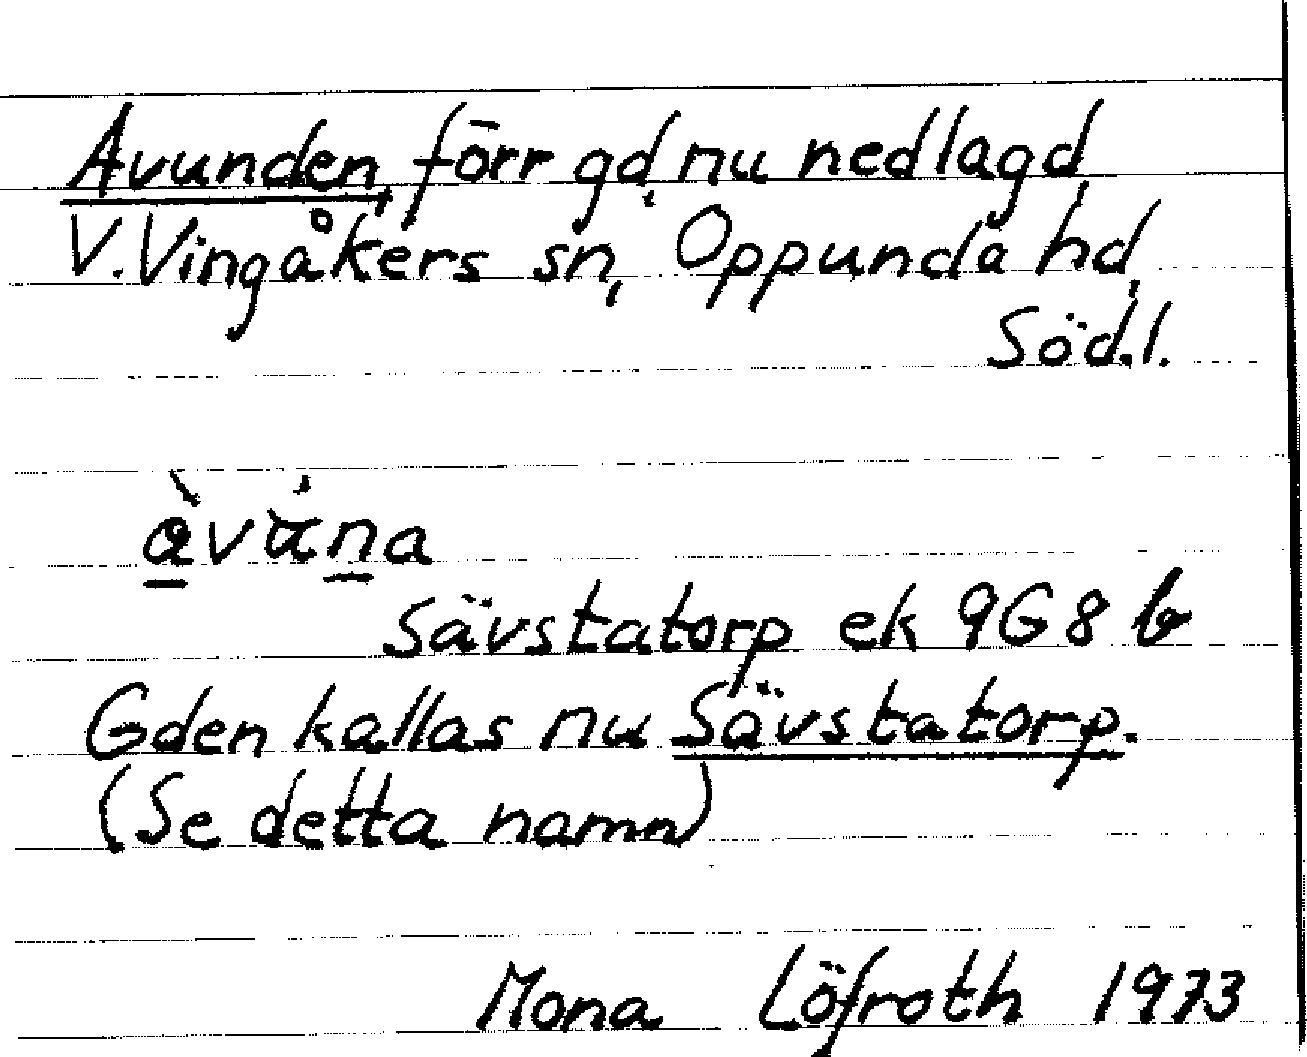 Avunden, förr gd, nu nedlagd,
V. Vingåkers sn, Oppunda hd,
Söd.l.
àvána
Sävstatorp ek 9G 8 b
Gden kallas nu Sävstatorp.
(Se detta namn)
Mona Löfroth 1973